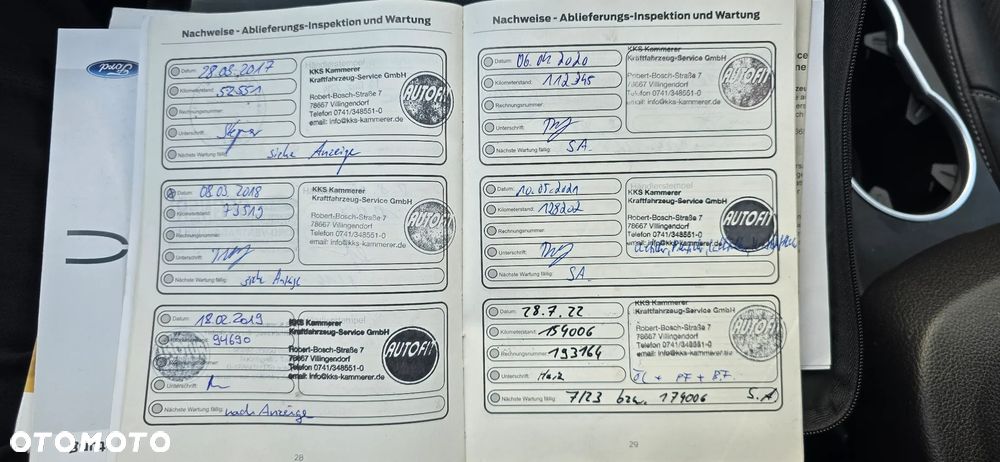 Ford
Nachweise - Ablieferungs-Inspektion und Wartung
Datum: 28.08.2017
Kilometerstand: 52551
Rechnungsnummer:
Unterschrift:
Nächste Wartung fällig: siehe Anzeige
KKS Kammerer
Kraftfahrzeug-Service GmbH
Robert-Bosch-Straße 7
78667 Villingendorf
Telefon 0741/348551-0
email: info@kks-kammerer.de
AUTOFIT
Datum: 08.03.2018
Kilometerstand: 73519
Rechnungsnummer:
Unterschrift:
Nächste Wartung fällig: siehe Anzeige
KKS Kammerer
Kraftfahrzeug-Service GmbH
Robert-Bosch-Straße 7
78667 Villingendorf
Telefon 0741/348551-0
email: info@kks-kammerer.de
AUTOFIT
Datum: 18.02.2019
94690
Unterschrift:
Nächste Wartung fällig: nach Anzeige
KKS Kammerer
Kraftfahrzeug-Service GmbH
Robert-Bosch-Straße 7
78667 Villingendorf
Telefon 0741/348551-0
email: info@kks-kammerer.de
AUTOFIT
28
Nachweise - Ablieferungs-Inspektion und Wartung
Datum: 2020
Kilometerstand: 112245
Rechnungsnummer:
Unterschrift:
Nächste Wartung fällig: SA.
KKS Kammerer
Kraftfahrzeug-Service GmbH
Robert-Bosch-Straße 7
78667 Villingendorf
Telefon 0741/348551-0
email: info@kks-kammerer.de
AUTOFIT
Datum: 10.05.2021
Kilometerstand: 128202
Rechnungsnummer:
Unterschrift:
Nächste Wartung fällig: SA.
Händlerstempel
KKS Kammerer
Kraftfahrzeug-Service GmbH
Robert-Bosch-Straße 7
78667 Villingendorf
Telefon 0741/348551-0
email: info@kks-kammerer.de
AUTOFIT
Datum: 28.7.22
Kilometerstand: 159006
Rechnungsnummer: 193164
Unterschrift:
Nächste Wartung fällig: 7/23 bzw. 179006 S.A
KKS Kammerer
Kraftfahrzeug-Service GmbH
Robert-Bosch-Straße 7
78667 Villingendorf
Telefon 0741/348551-0
email: info@kks-kammerer.de
AUTOFIT
ÖL + PF + BF.
29
OTOMOTO